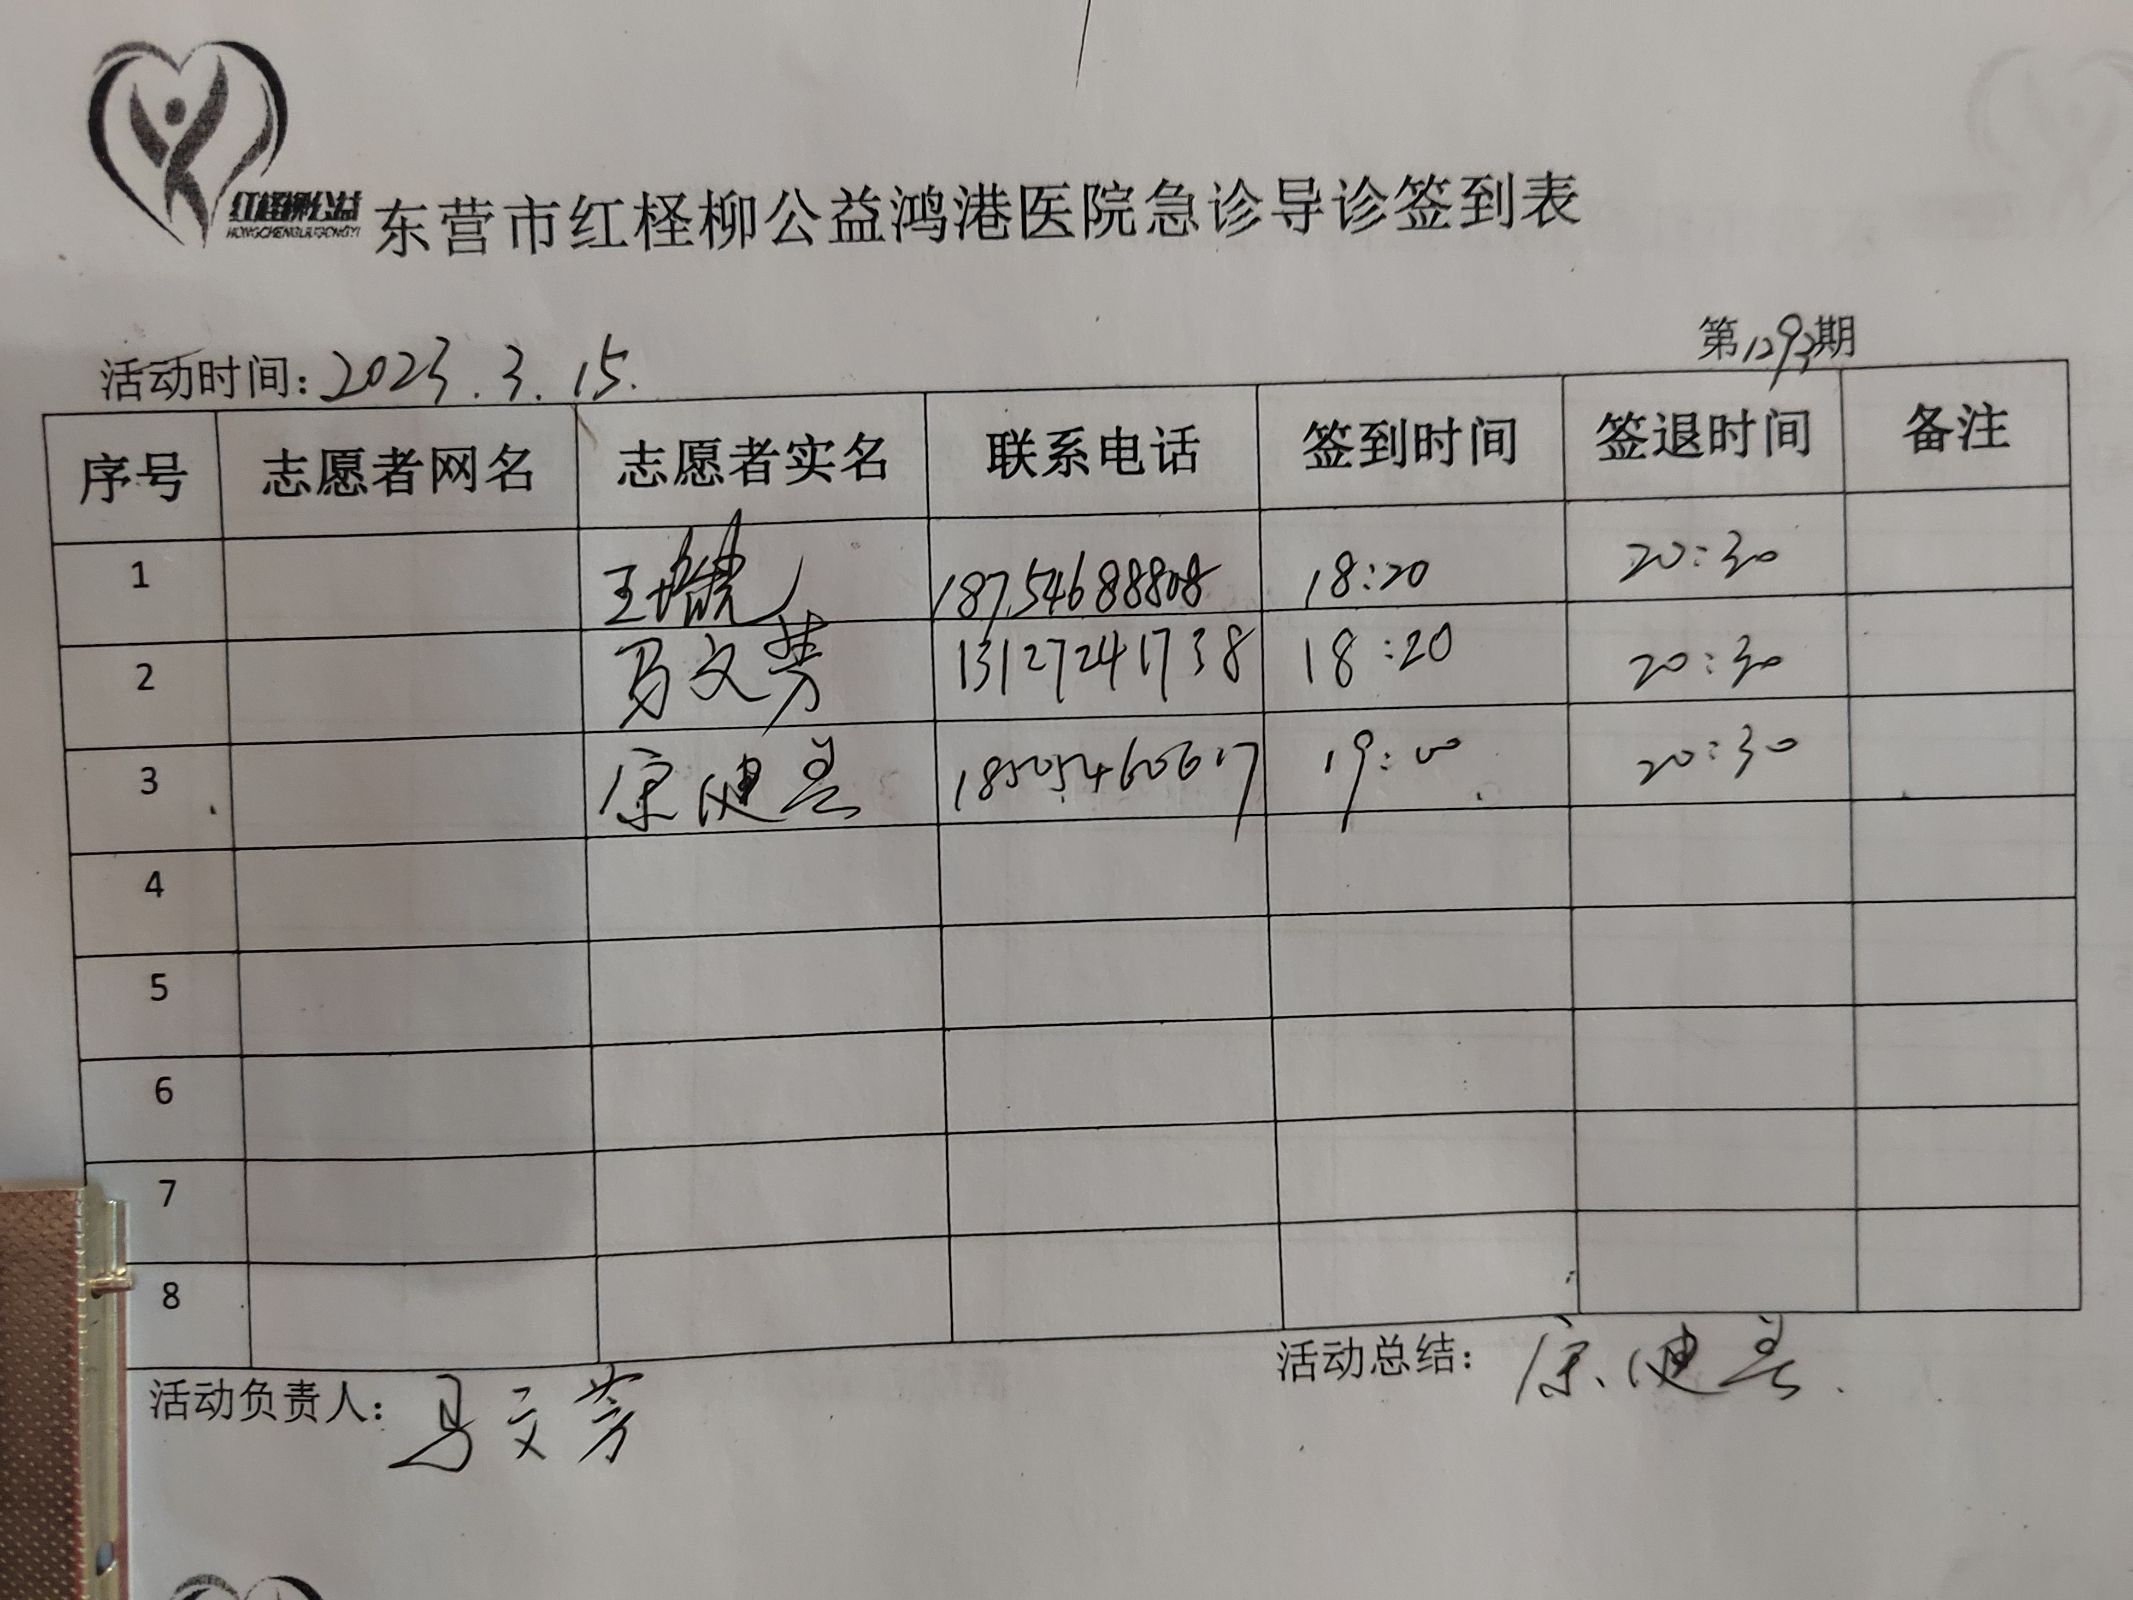 红柽柳公益
HONGCHENGLIUGONGYI
东营市红柽柳公益鸿港医院急诊导诊签到表
活动时间：2023.3.15. 第1293期
序号 志愿者网名 志愿者实名 联系电话 签到时间 签退时间 备注
1 王 18754688808 18:20 20:30
2 马文芳 13127241738 18:20 20:30
3 健 18505460617 19:00 20:30
4
5
6
7
8
活动负责人：马文芳 活动总结：健